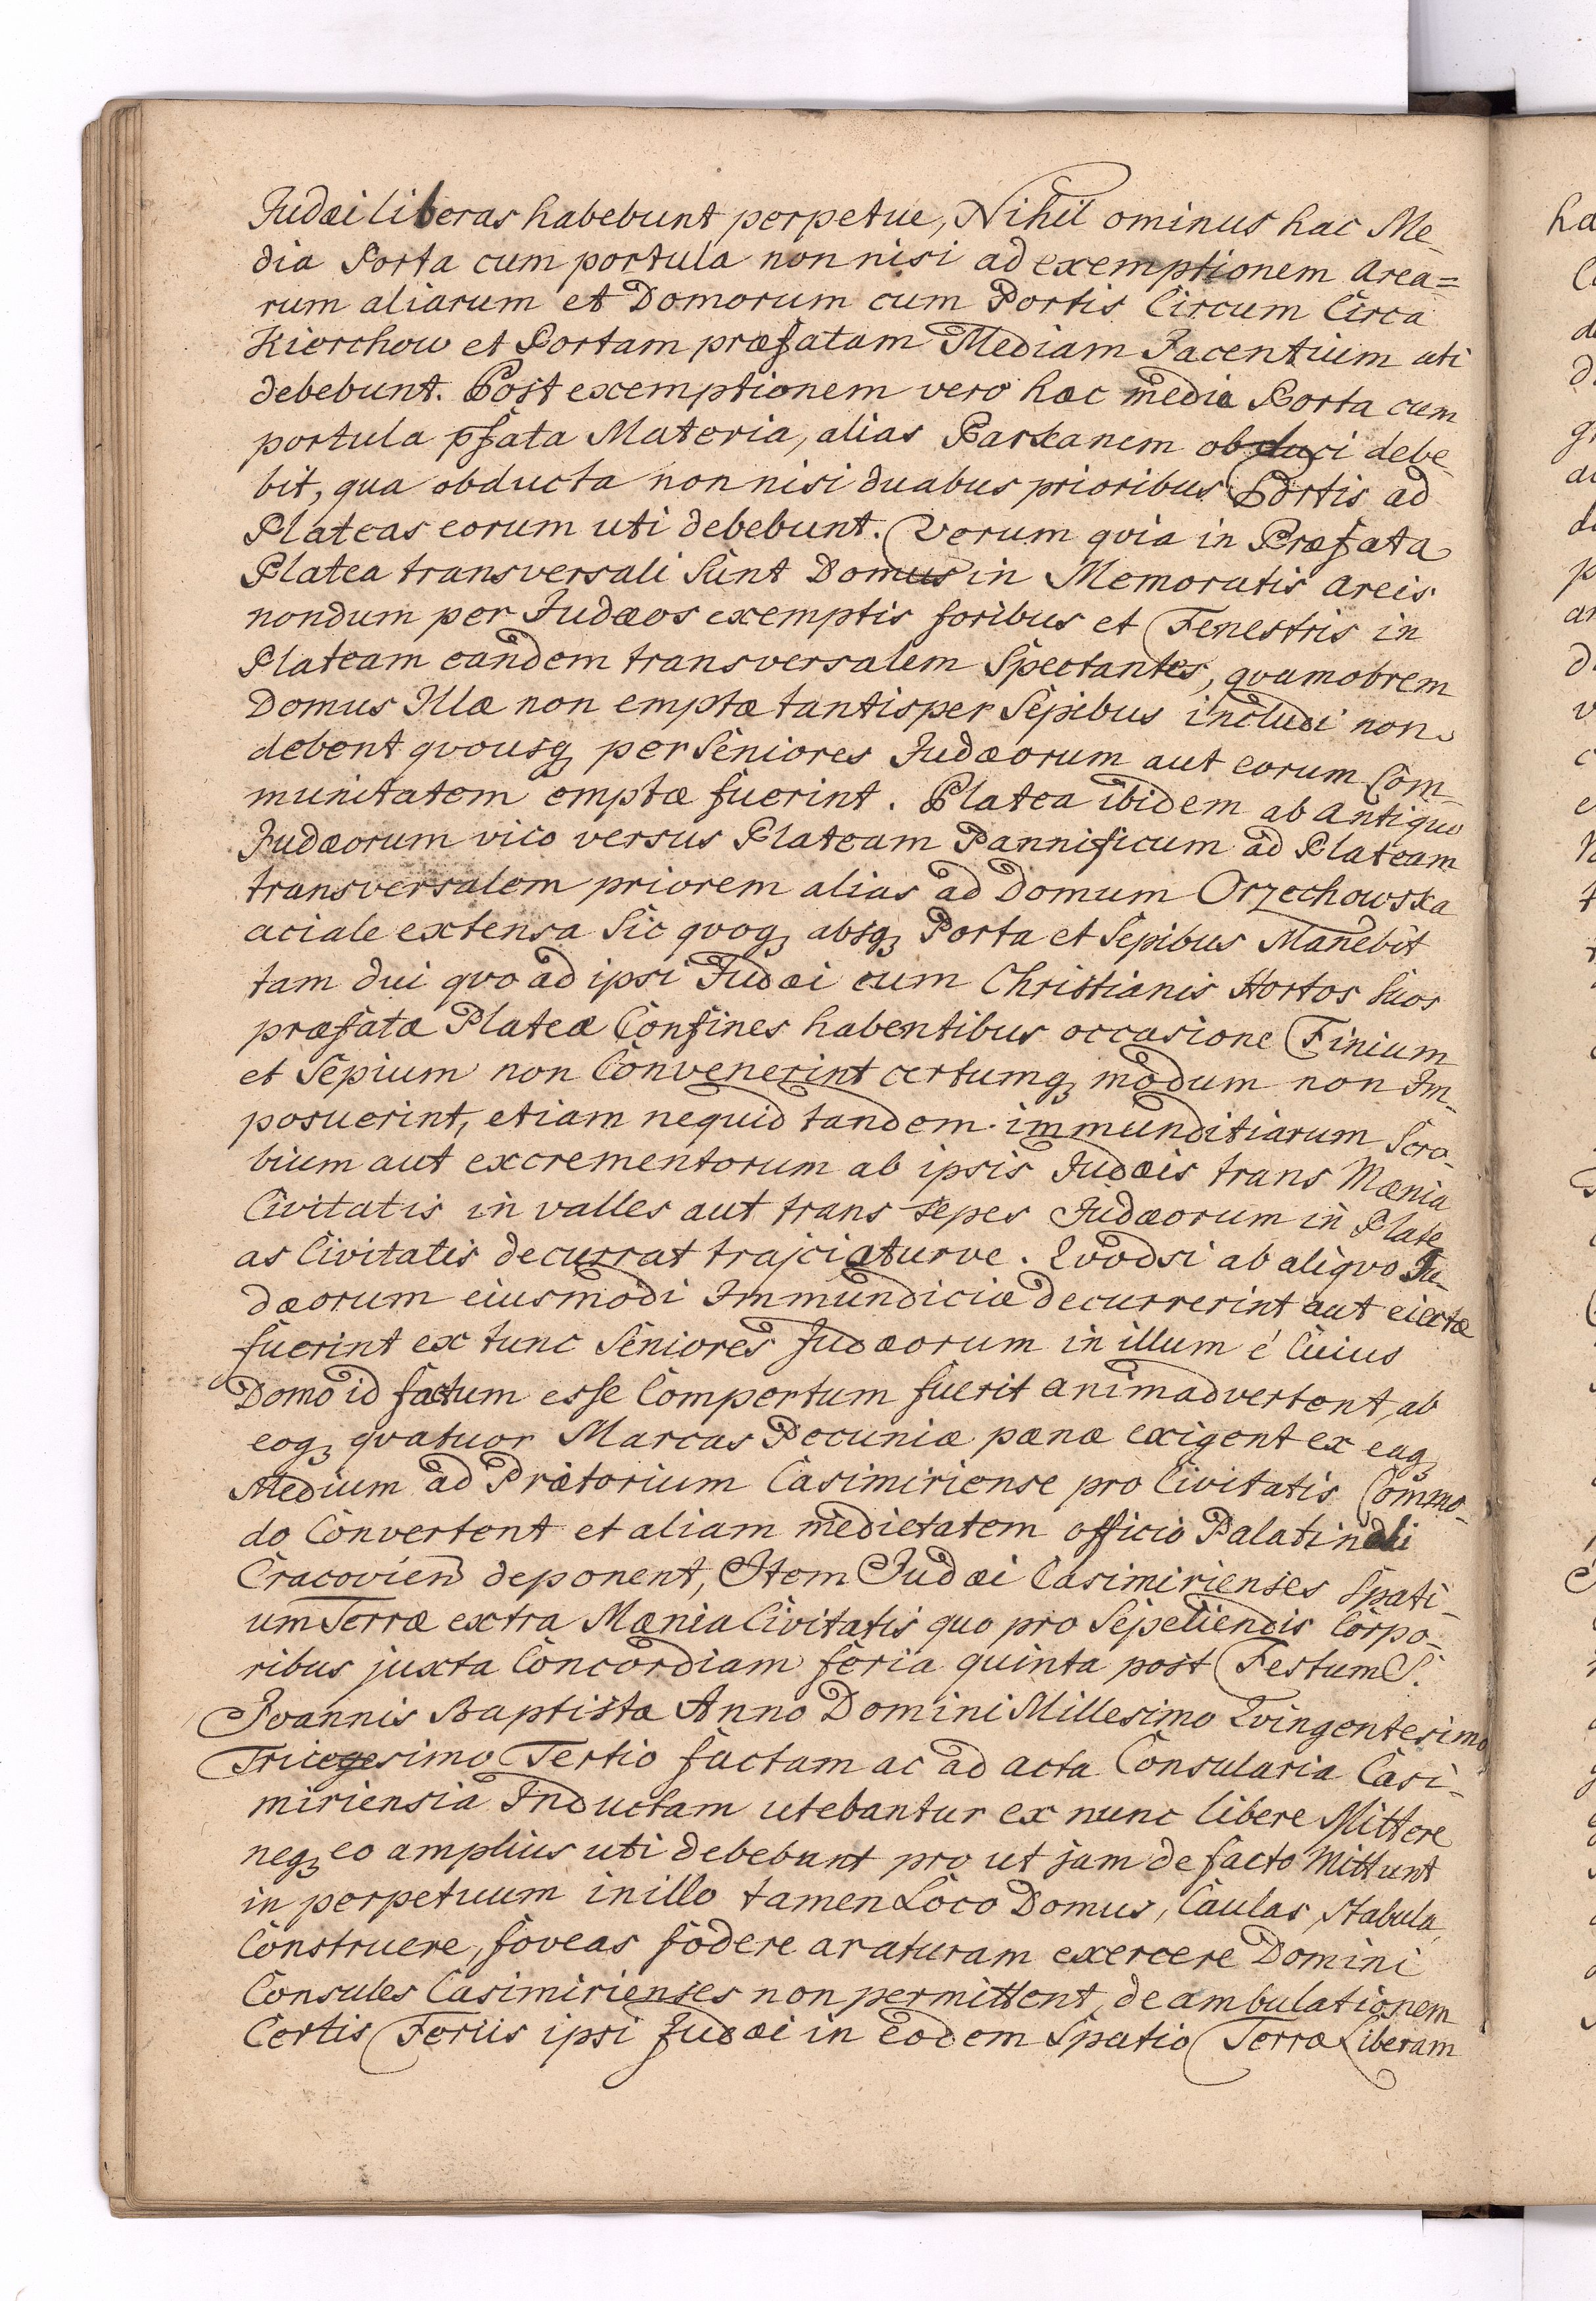 Judæi liberas habebunt perpetue, Nihil ominus hac Me-
dia Porta cum portula non nisi ad exemptionem Area=
rum aliarum et Domorum cum Portis Circum Circa
Kierchow et Portam præfatam Mediam Jacentium uti
debebunt. Post exemptionem vero hæc media Porta cum
portula pfata Materia, alias Parkanem obduci debe-
bit, qua obducta non nisi duabus prioribus Portis ad
Plateas eorum uti debebunt. Verum qvia in Præfata
Platea transversali Sunt Domus in Memoratis areis
nondum per Judæos exemptis foribus et Fenestris in
Plateam eandem transversalem Spectantes, qvamobrem
Domus Illæ non emptæ tantisper Sepibus includi non
debent qvousq per Seniores Judæorum aut eorum Com-
munitatem emptæ fuerint. Platea ibidem ab Antiquo
Judæorum vico versus Plateam Pannificum ad Plateam
transversalem priorem alias ad Domum Orzechowska
aciale extensa Sic qvoq absq Porta et Sepibus Manebit
tam dui qvo ad ipsi Judæi cum Christianis Hortos Suos
præfatæ Plateæ Confines habentibus occasione Finium
et Sepium non Convenerint certumq modum non Im-
posuerint, etiam nequid tandem immunditiarum Scro-
bium aut excrementorum ab ipsis Judæis trans Mænia
Civitatis in valles aut trans Sepes Judæorum in Plate
as Civitatis decurrat trajciaturve. Qvodsi ab aliqvo Ju-
dæorum eiusmodi Immundiciæ decurrerint aut eiectæ
fuerint ex tunc Seniores Judæorum in illum é Cuius
Domo id factum esse Compertum fuerit animadvertent, ab
eoq qvatuor Marcas Pecuniæ pænæ exigent ex eaq
Medium ad Prætorium Casimiriense pro Civitatis Commo-
do Convertent et aliam medietatem officio Palatinali
Cracovien deponent, Item Judæi Casimirienses Spati-
um Terræ extra Mænia Civitatis quo pro Sepeliendis Corpo-
ribus juxta Concordiam feria quinta post Festum S.
Joannis Baptistæ Anno Domini Millesimo Qvingentesimo
Tricegesimo Tertio factam ac ad acta Consularia Casi-
miriensia Inductam utebantur ex nunc libere Mittere
neq eo amplius uti debebunt pro ut jam de facto Mittunt
in perpetuum in illo tamen Loco Domus, Caulas, Stabula,
Construere, foveas fodere araturam exercere Domini
Consules Casimirienses non permittent, de ambulationem
Certis Feriis ipsi Judæi in eodem Spatio Terræ Liberam